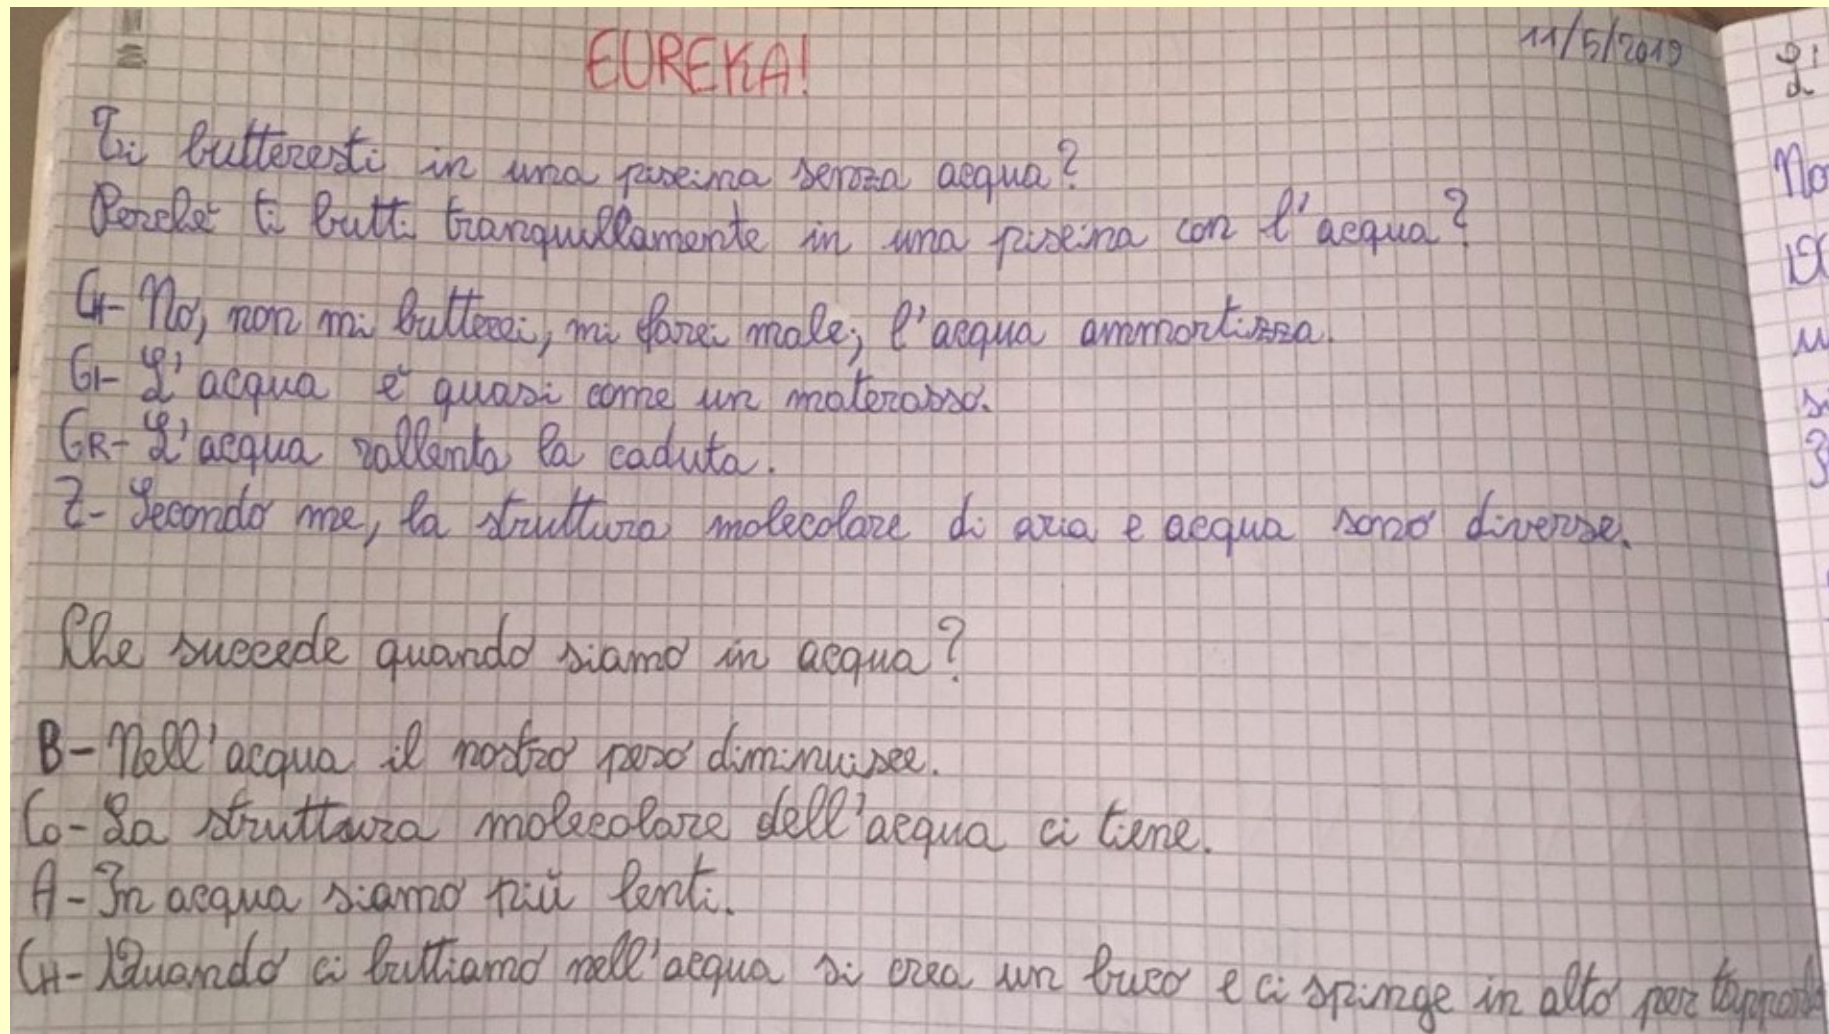 EUREKA!
11/5/2019
Ti butteresti in una piscina senza acqua?
Perché ti butti tranquillamente in una piscina con l'acqua?
CH- No, non mi butterei, mi farei male; l'acqua ammortizza.
GI- L'acqua è quasi come un materasso.
GR- L'acqua rallenta la caduta.
Z- Secondo me, la struttura molecolare di aria e acqua sono diverse.
Che succede quando siamo in acqua?
B- Nell'acqua il nostro peso diminuisce.
Co- La struttura molecolare dell'acqua ci tiene.
A- In acqua siamo più lenti.
CH- Quando ci buttiamo nell'acqua si crea un buco e ci spinge in alto per